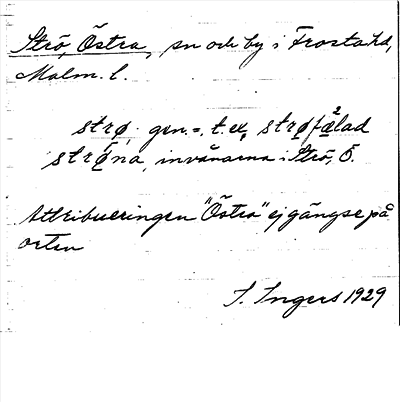 Strö, Östra, sn och by i Frosta hd,
Malm. l.
strø, gen. =, t. ex. strøfælad
strøna, invånarna i Strö, Ö.
Attribueringen "Östra" ej gängse på
orten
I. Ingers 1929